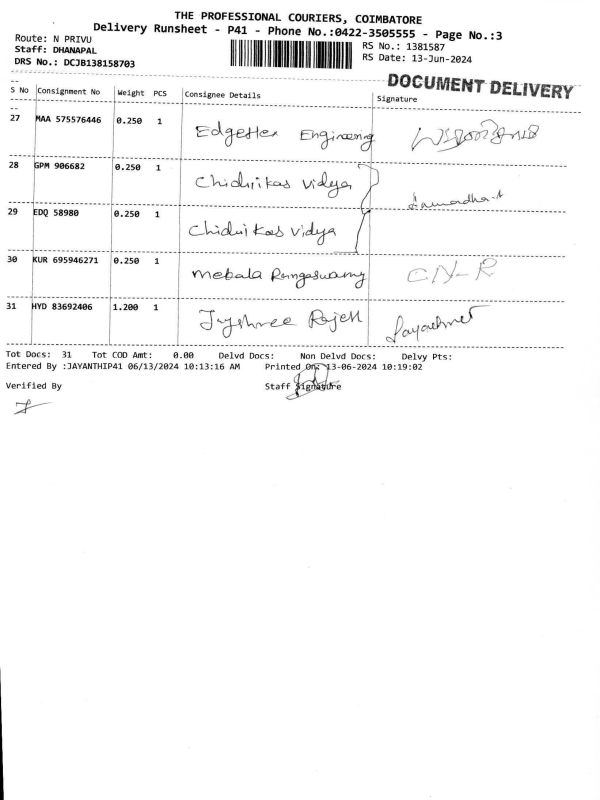 THE PROFESSIONAL COURIERS, COIMBATORE
Delivery Runsheet - P41 - Phone No.:0422-3505555 - Page No.:3
Route: N PRIVU
RS No.: 1381587
Staff: DHANAPAL
RS Date: 13-Jun-2024
DRS No.: DCJB138158703
DOCUMENT DELIVERY
S No Consignment No Weight PCS Consignee Details Signature
27 MAA 575576446 0.250 1 Engineering
28 GPM 906682 0.250 1 Chidvikas Vidya
29 EDQ 58980 0.250 1 Chidvikas Vidya
30 KUR 695946271 0.250 1 Mebala Rangaswamy
31 HYD 83692406 1.200 1 Jayshree Rajesh
Tot Docs: 31 Tot COD Amt: 0.00 Delvd Docs: Non Delvd Docs: Delvy Pts:
Entered By :JAYANTHIP41 06/13/2024 10:13:16 AM Printed On: 13-06-2024 10:19:02
Verified By Staff Signature